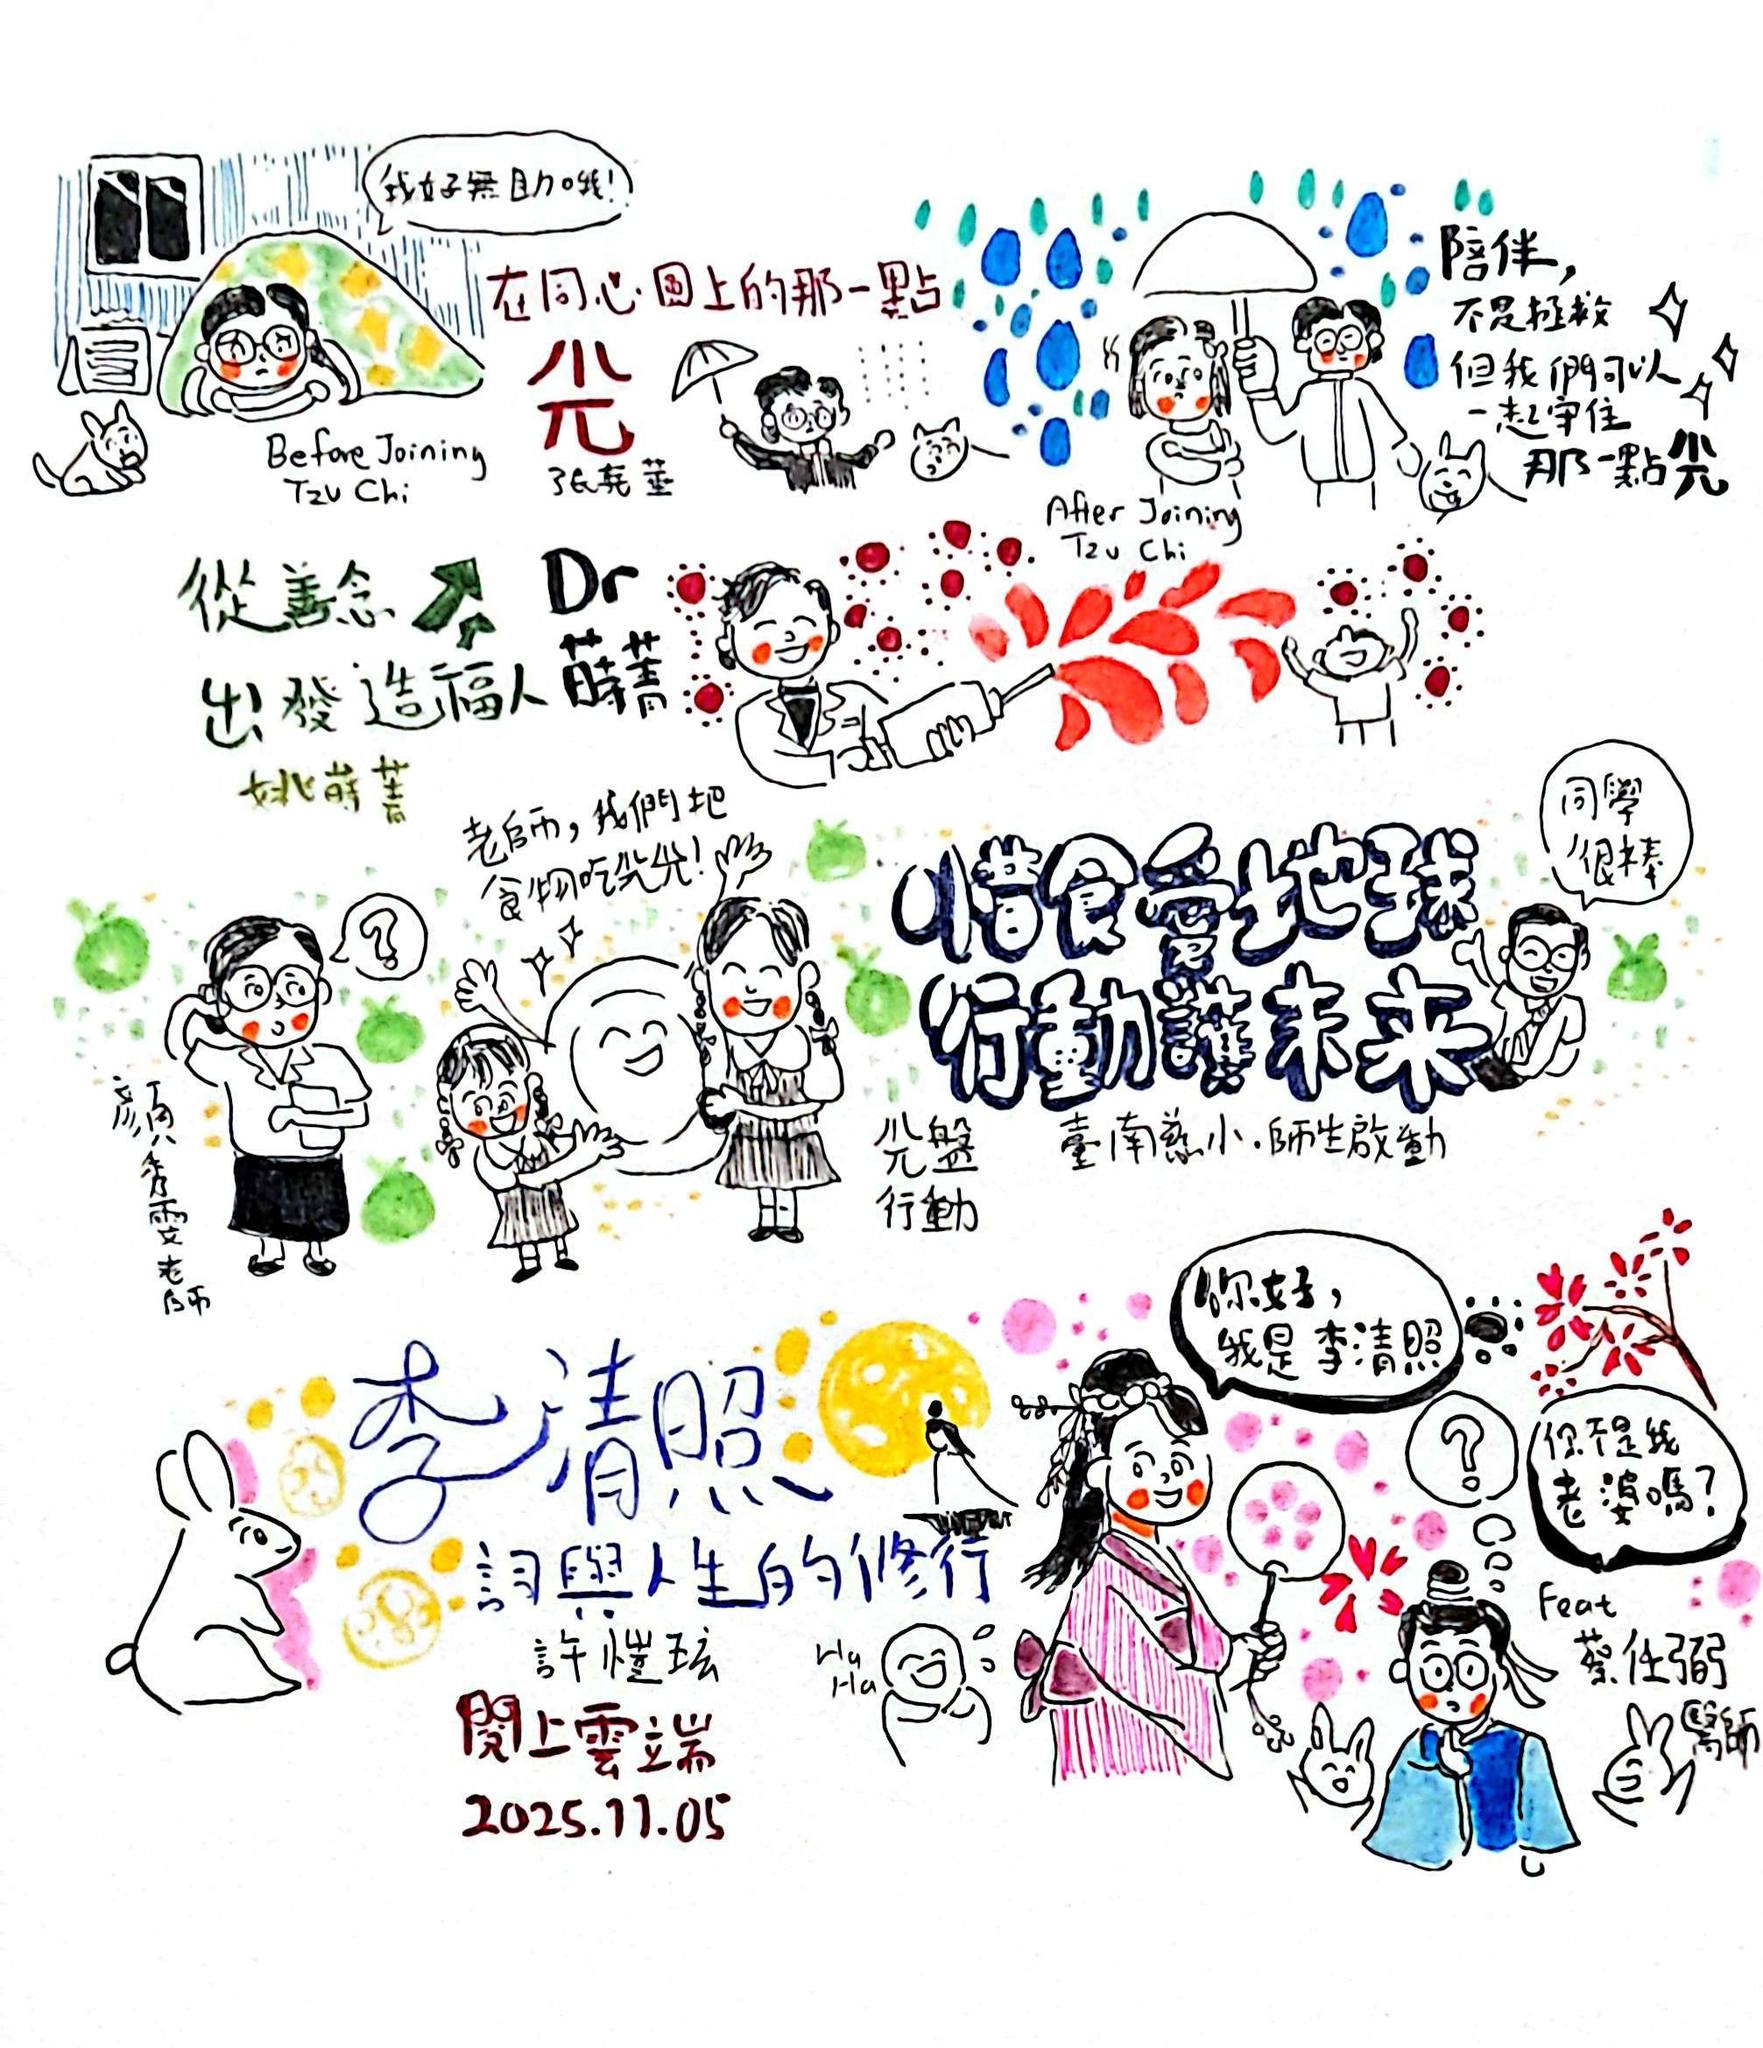 我好無助哦!
在同心圓上的那一點
光
張莞葶
Before Joining
Tzu Chi
陪伴,
不是拯救
但我們可以
一起守住
那一點光
After Joining
Tzu Chi
從善念
出發造福人
姚蒔菁
Dr
蒔菁
老師,我們把
食物吃光光!
?
顏秀雯老師
光盤
行動
惜食愛地球
行動護未来
臺南慈小.師生啟動
同學
很棒
李清照
詞與人生的修行
許愷玹
閱上雲端
2025.11.05
Ha
Ha
你好,
我是李清照
?
你不是我
老婆嗎?
Feat
蔡任弼
醫師